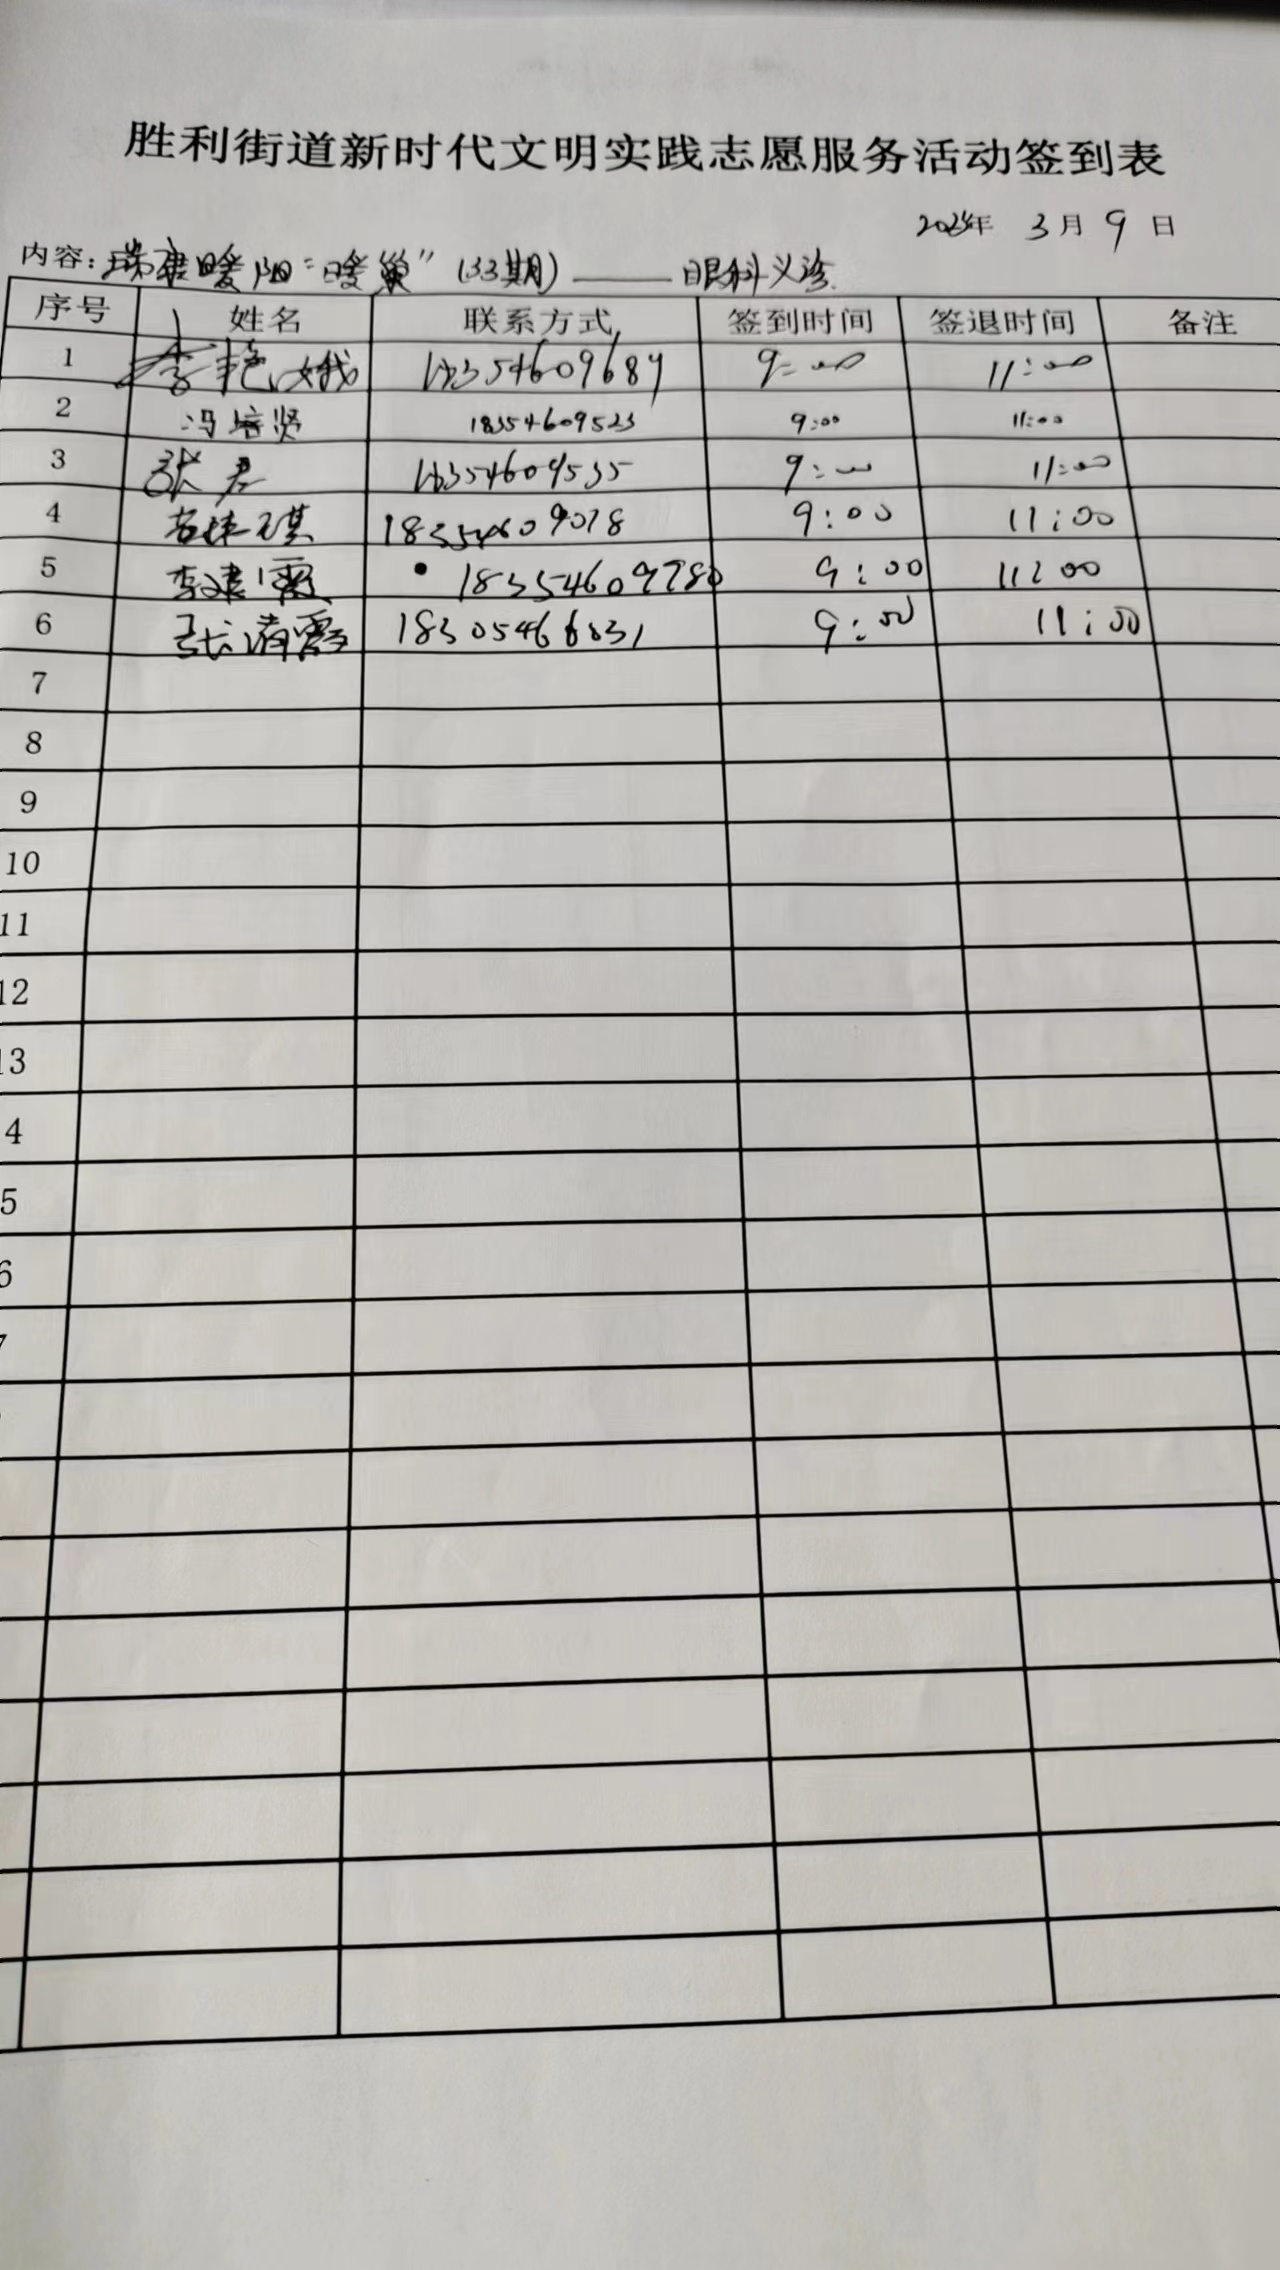 胜利街道新时代文明实践志愿服务活动签到表
年 3月 9日
内容：瑞康暖阳“暖巢”（33期）——眼科义诊
序号 姓名 联系方式 签到时间 签退时间 备注
1 李艳娥 18354609689 9:00 11:00
2 冯培贤 18354609523 9:00 11:00
3 张 18354609535 9:00 11:00
4 18354609078 9:00 11:00
5 李建霞 18354609780 9:00 11:00
6 张清霞 9:00 11:00
7
8
9
10
11
12
13
4
5
6
7